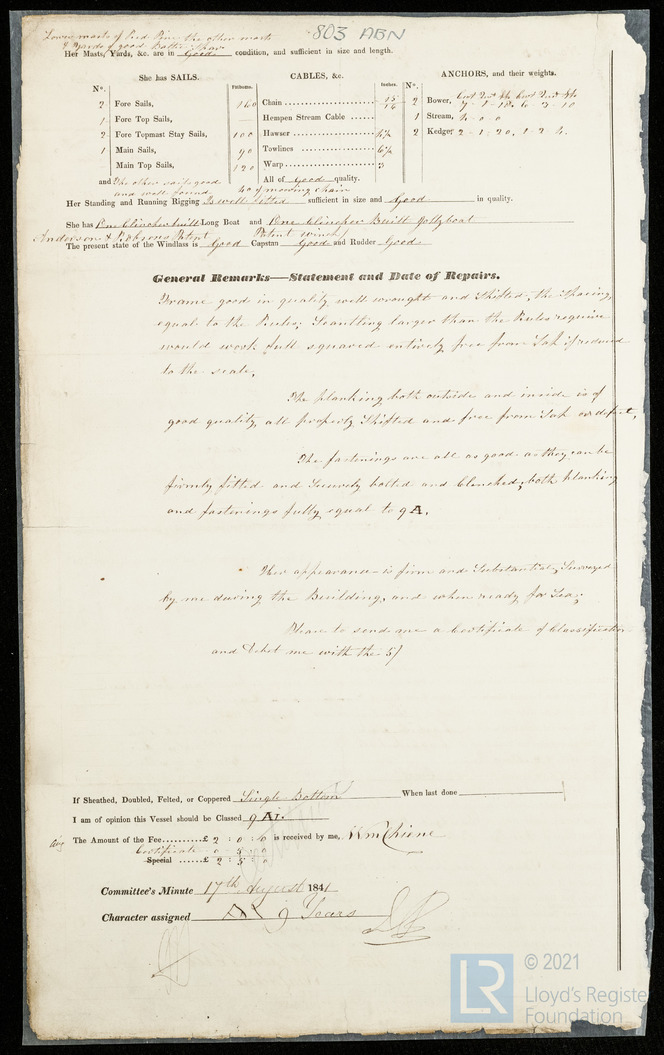 803 ABN
Lower masts of Red Pine the other masts
& Yards of good Baltic Spar
Her Masts, Yards, &c. are in Good condition, and sufficient in size and length.
She has SAILS.
CABLES, &c.
ANCHORS, and their weights.
N°. Fathoms. Inches. N°.
2 Fore Sails, 160 Chain 15/16 2 Bower, 7-1-18 6-3-10
1 Fore Top Sails, Hempen Stream Cable 1 Stream,
2 Fore Topmast Stay Sails, 100 Hawser 2 Kedger 2-1-20, 1-2-4.
1 Main Sails, 90 Towlines
Main Top Sails, 120 Warp 3
and The other sails good All of Good quality.
and well found 40 f mooring chain
Her Standing and Running Rigging Is well fitted sufficient in size and Good in quality.
She has One Clincher built Long Boat and One Clincher Built Jollyboat
Patent winch
The present state of the Windlass is Good Capstan Good and Rudder Good
General Remarks—Statement and Date of Repairs.
Frame good in quality well wrought and Shifted, the Spacing
equal to the Rules; Scantling larger than the Rules require
would work full squared entirely free from Sap if reduced
to the scale.
The planking both outside and inside is of
good quality, all properly Shifted and free from Sap or defect,
The fastenings are all as good as they can be
firmly fitted and Securely bolted and Clenched, both planking
and fastenings fully equal to 9 A.
Her appearance is firm and Substantial, Surveyed
by me during the Building, and when ready for Sea;
Please to send me a Certificate of Classification
and debit me with the 5/
If Sheathed, Doubled, Felted, or Coppered Single Bottom When last done
I am of opinion this Vessel should be Classed 9 A1.
The Amount of the Fee..........£ 2 : 0 : 0 is received by me, Wm Chiene
Certificate 0 5 0
Special ......£ 2 : 5 : 0
Committee's Minute 17th August 1841
Character assigned 9 Years
LR
© 2021
Lloyd's Registe
Foundation